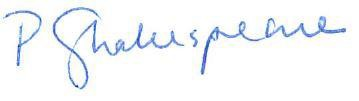 P Shakespeare